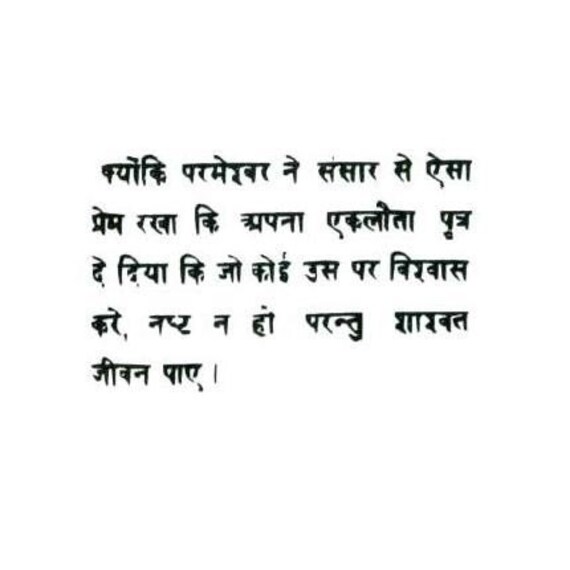 क्योंकि परमेश्वर ने संसार से ऐसा
प्रेम रखा कि अपना एकलौता पुत्र
दे दिया कि जो कोई उस पर विश्वास
करे, नष्ट न हो परन्तु शाश्वत
जीवन पाए।